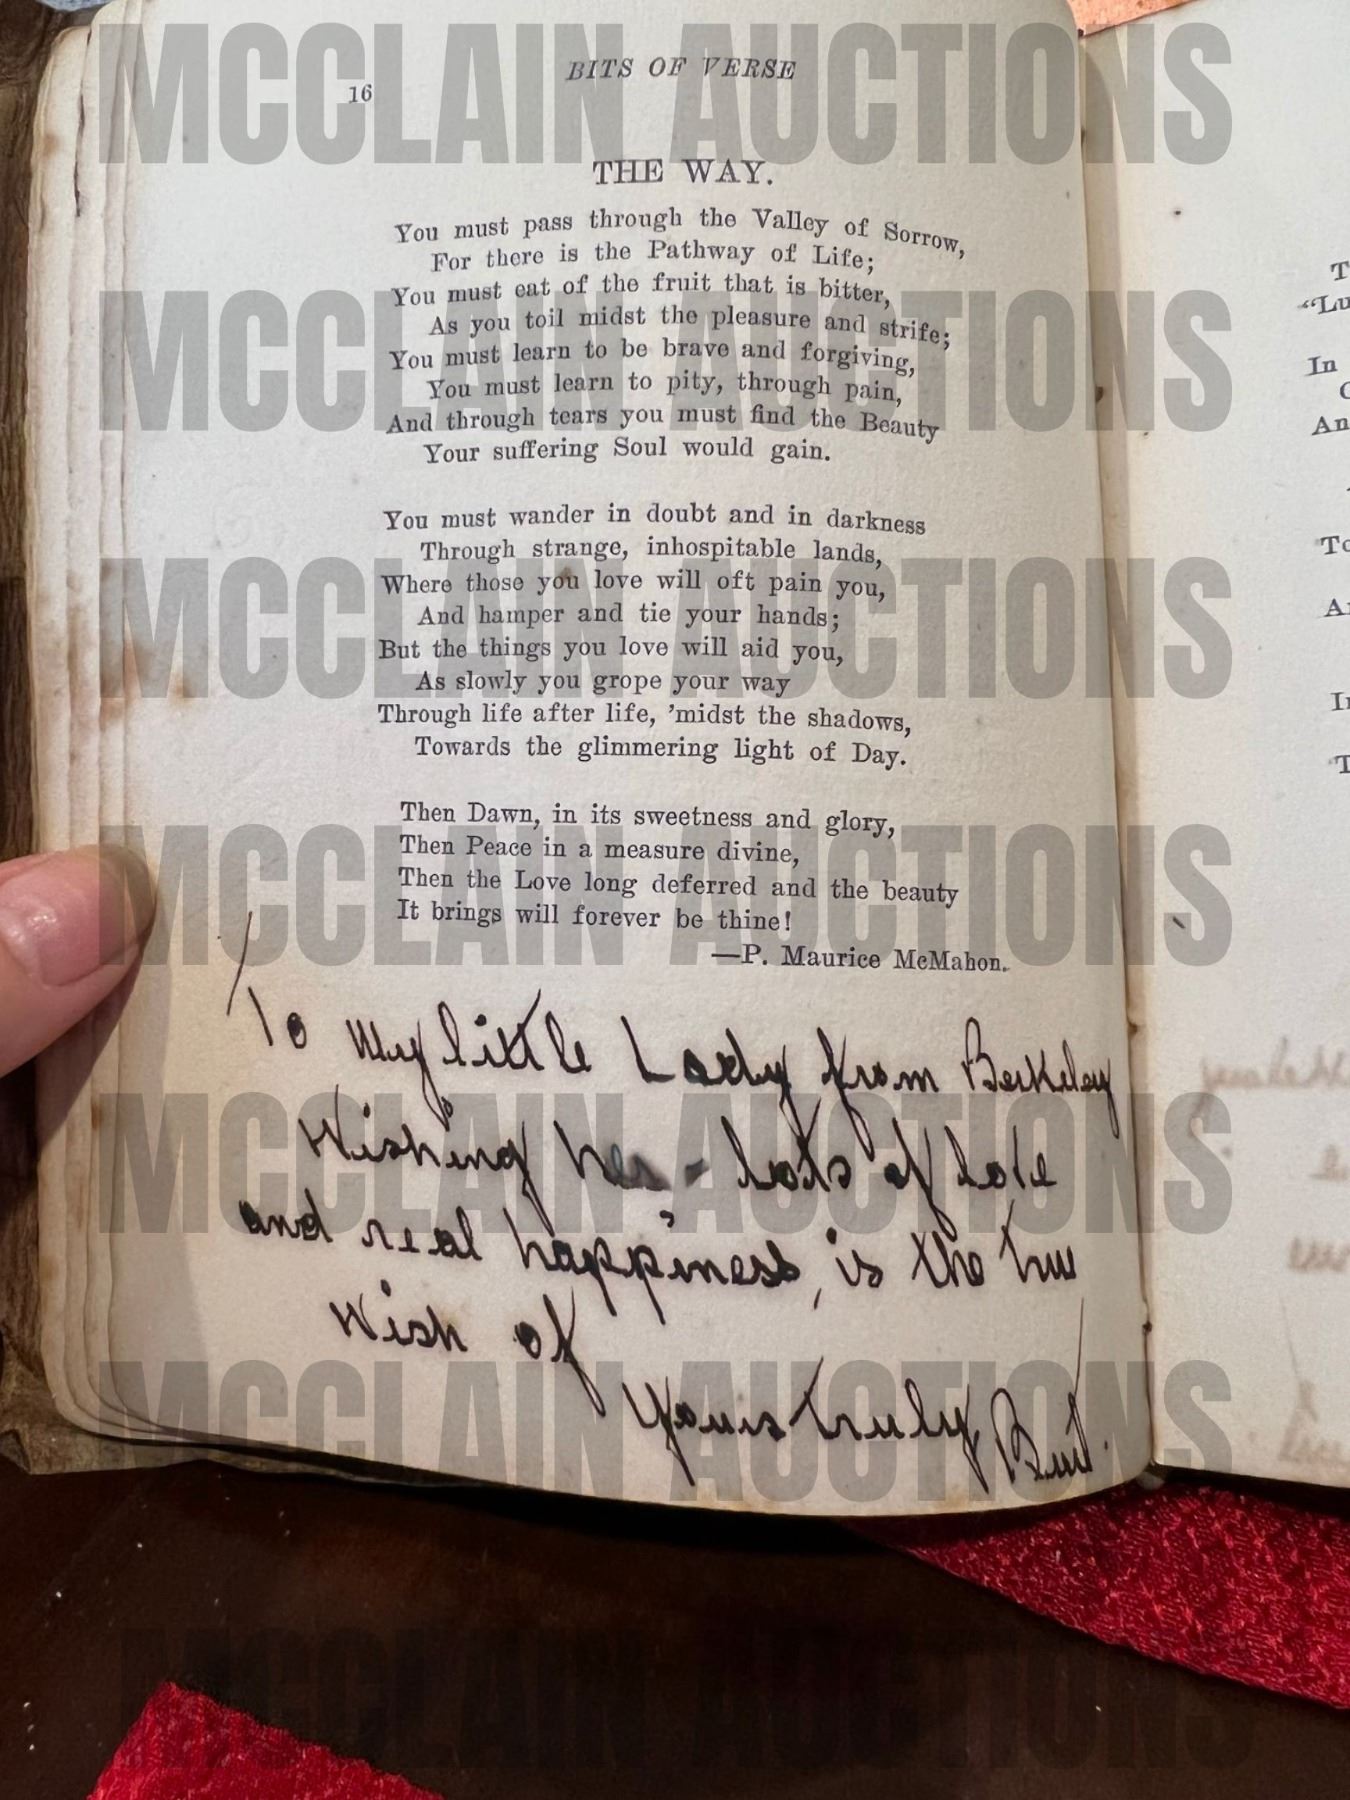 BITS OF VERSE
16
THE WAY.
You must pass through the Valley of Sorrow,
For there is the Pathway of Life;
You must eat of the fruit that is bitter,
As you toil midst the pleasure and strife;
You must learn to be brave and forgiving,
You must learn to pity, through pain,
And through tears you must find the Beauty
Your suffering Soul would gain.
You must wander in doubt and in darkness
Through strange, inhospitable lands,
Where those you love will oft pain you,
And hamper and tie your hands;
But the things you love will aid you,
As slowly you grope your way
Through life after life, 'midst the shadows,
Towards the glimmering light of Day.
Then Dawn, in its sweetness and glory,
Then Peace in a measure divine,
Then the Love long deferred and the beauty
It brings will forever be thine!
—P. Maurice McMahon.
To My little Lady from Berkeley
Wishing her - lots of love
and real happiness, is the true
Wish of
Yours truly
T
"Lu
In
An
To
In
MCCLAIN AUCTIONS
MCCLAIN AUCTIONS
MCCLAIN AUCTIONS
MCCLAIN AUCTIONS
MCCLAIN AUCTIONS
MCCLAIN AUCTIONS
MCCLAIN AUCTIONS